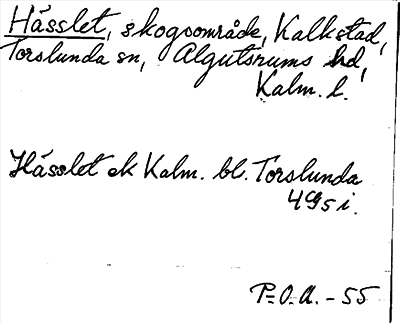 Hässlet, skogsområde, Kalkstad,
Torslunda sn, Algutsrums hd,
Kalm. l.
Hässlet ek Kalm. bl. Torslunda
4G5i.
P.O.A. - 55